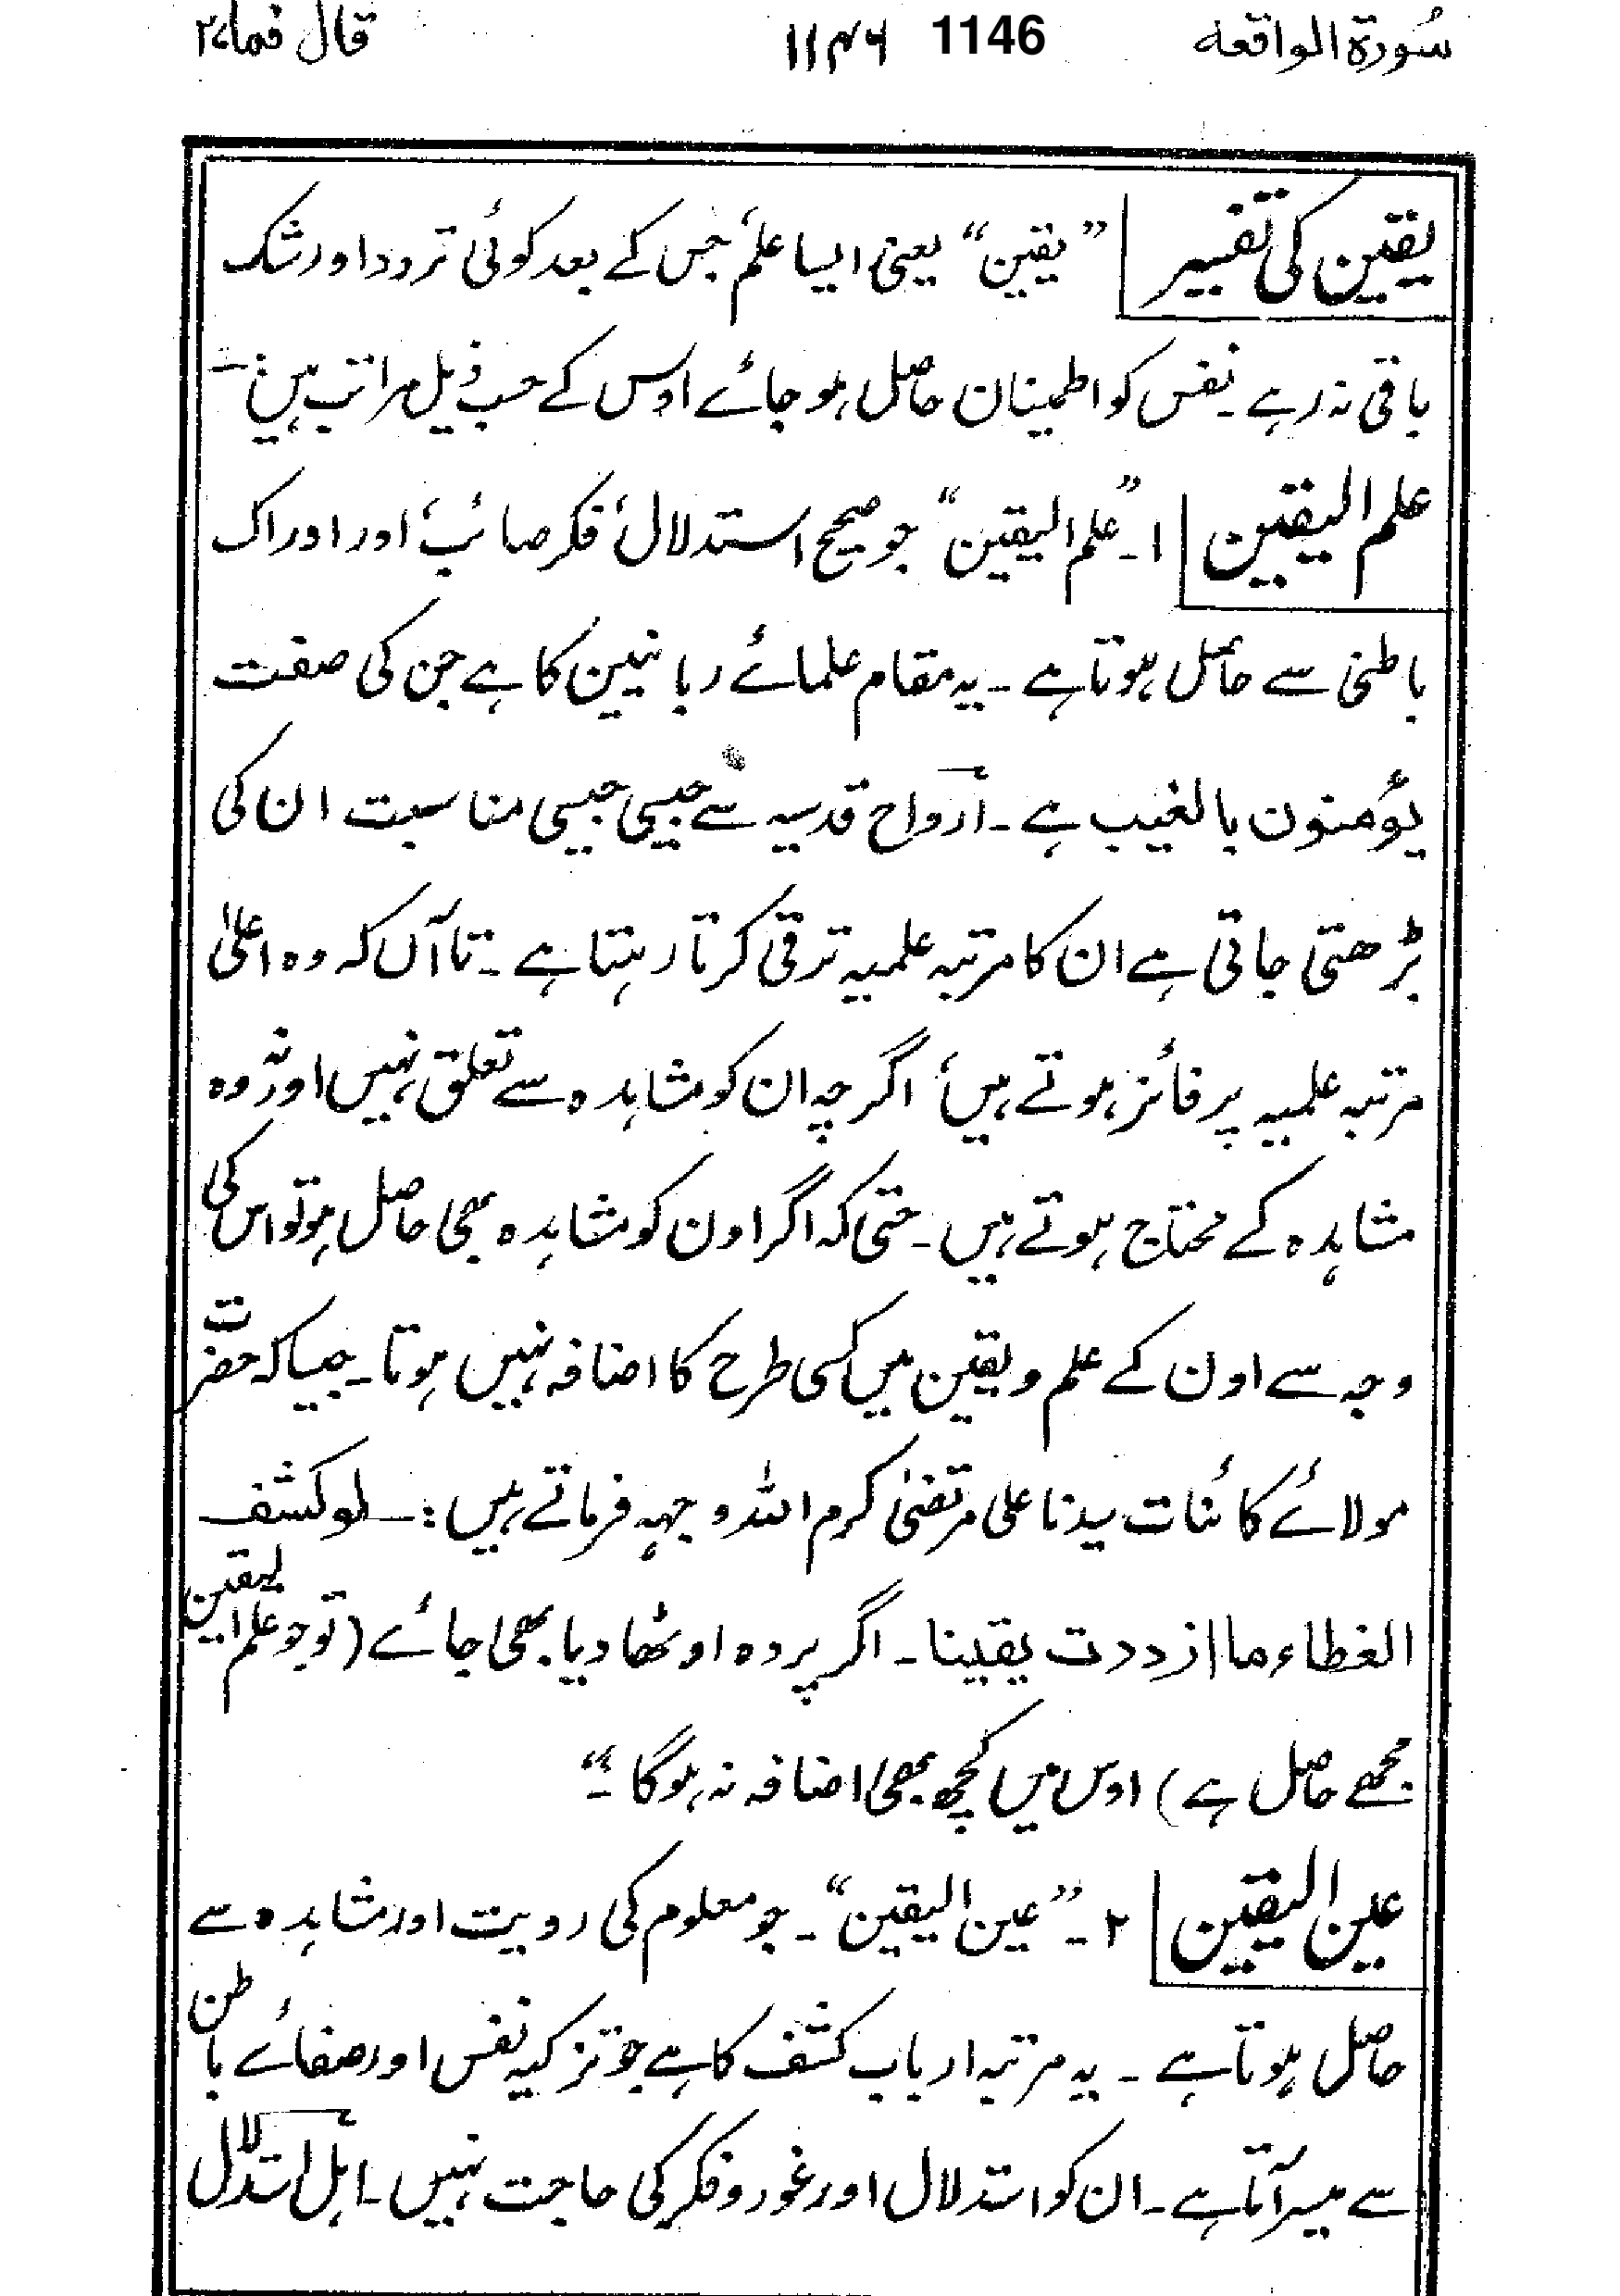 سُورۃ الواقعه ۱۱۴۶ 1146 قال فما ۲۷
یقین کی تفسیر "یقین" یعنی ایسا علم، جس کے بعد کوئی تردد اور شک
باقی نہ رہے ۔ نفس کو اطمینان حاصل ہو جائے اوس کے حسب ذیل مراتب ہیں :۔
علم الیقین ۱۔ "علم الیقین" جو صحیح استدلال، فکر صائب، اور ادراک
باطنی سے حاصل ہوتا ہے ۔ یہ مقام علمائے ربانیین کا ہے جن کی صفت
یؤمنون بالغیب ہے ۔ ارواح قدسیہ سے جیسی جیسی مناسبت ان کی
بڑھتی جاتی ہے ان کا مرتبہ علمیہ ترقی کرتا رہتا ہے ۔ تا آں کہ وہ اعلیٰ
مرتبہ علمیہ پر فائز ہوتے ہیں، اگرچہ ان کو مشاہدہ سے تعلق نہیں اور نہ وہ
مشاہدہ کے محتاج ہوتے ہیں ۔ حتی کہ اگر اون کو مشاہدہ بھی حاصل ہو تو اس کی
وجہ سے اون کے علم و یقین میں کسی طرح کا اضافہ نہیں ہوتا ۔ جیسا کہ حضرت
مولائے کائنات سیدنا علی مرتضیٰ کرم اللہ وجہہ فرماتے ہیں :۔ لو کشف
الغطاء ما ازددت یقینا ۔ اگر پردہ اوٹھا دیا بھی جائے (تو جو علم الیقین
مجھے حاصل ہے) اوس میں کچھ بھی اضافہ نہ ہوگا ۔"
عین الیقین ۲ ۔ "عین الیقین" ۔ جو معلوم کی رویت اور مشاہدہ سے
حاصل ہوتا ہے ۔ یہ مرتبہ ارباب کشف کا ہے جو تزکیہ نفس اور صفائے باطن
سے میسر آتا ہے ۔ ان کو استدلال اور غور و فکر کی حاجت نہیں ۔ اہل استدلال